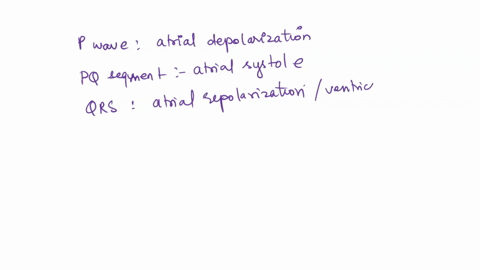 P wave : atrial depolarization
PQ segment :- atrial systole
QRS : atrial repolarization / ventric